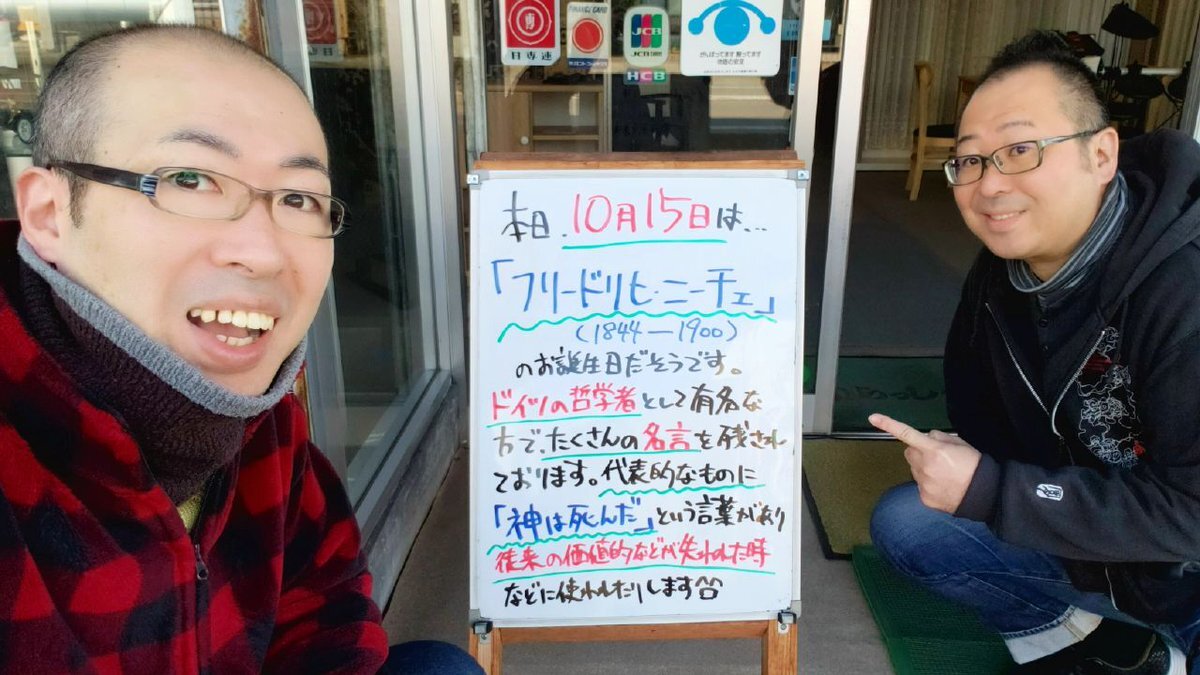 日専連
JCB
JCB
HCB
本日、10月15日は…
「フリードリヒ・ニーチェ」
(1844―1900)
のお誕生日だそうです。
ドイツの哲学者として有名な
方で、たくさんの名言を残され
ております。代表的なものに
「神は死んだ」という言葉があり
従来の価値的などが失われた時
などに使われたりします